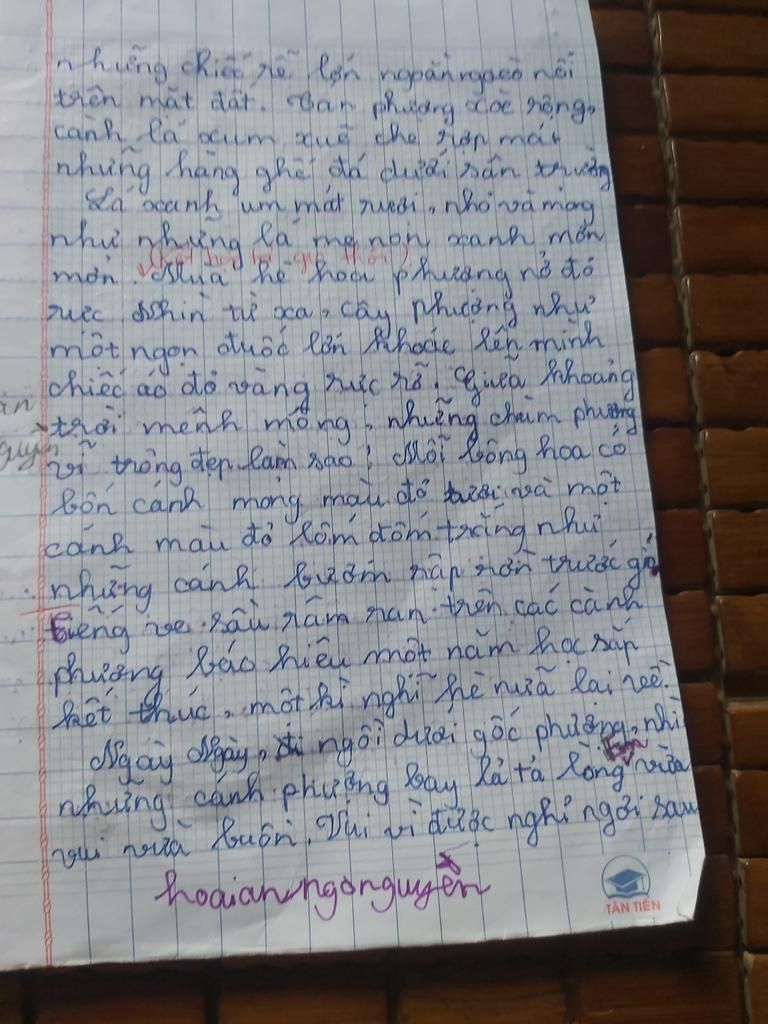 những chiếc rễ lớn ngoằn ngoèo nổi
trên mặt đất. Tán phượng xoè rộng,
cành lá xum xuê che rợp mát
những hàng ghế đá dưới sân trường
Lá xanh um mát rượi, nhỏ và mỏng
như những lá me non xanh mơn
mởn. Mùa hè hoa phượng nở đỏ
rực Nhìn từ xa, cây phượng như
một ngọn đuốc lớn khoác lên mình
chiếc áo đỏ vàng rực rỡ. Giữa khoảng
trời mênh mông, những chùm phượng
vĩ trông đẹp làm sao! Mỗi bông hoa có
bốn cánh mỏng màu đỏ tươi và một
cánh màu đỏ lốm đốm trắng như
những cánh bướm rập rờn trước gió
tiếng ve sầu râm ran trên các cành
phượng báo hiệu một năm học sắp
kết thúc, một kì nghỉ hè nữa lại về.
Ngày Ngày, ngồi dưới gốc phượng, nhì
những cánh phượng bay lả tả lòng vừa
vui vừa buồn. Vui vì được nghỉ ngơi sau
hoaianngonguyễn
TÂN TIẾN